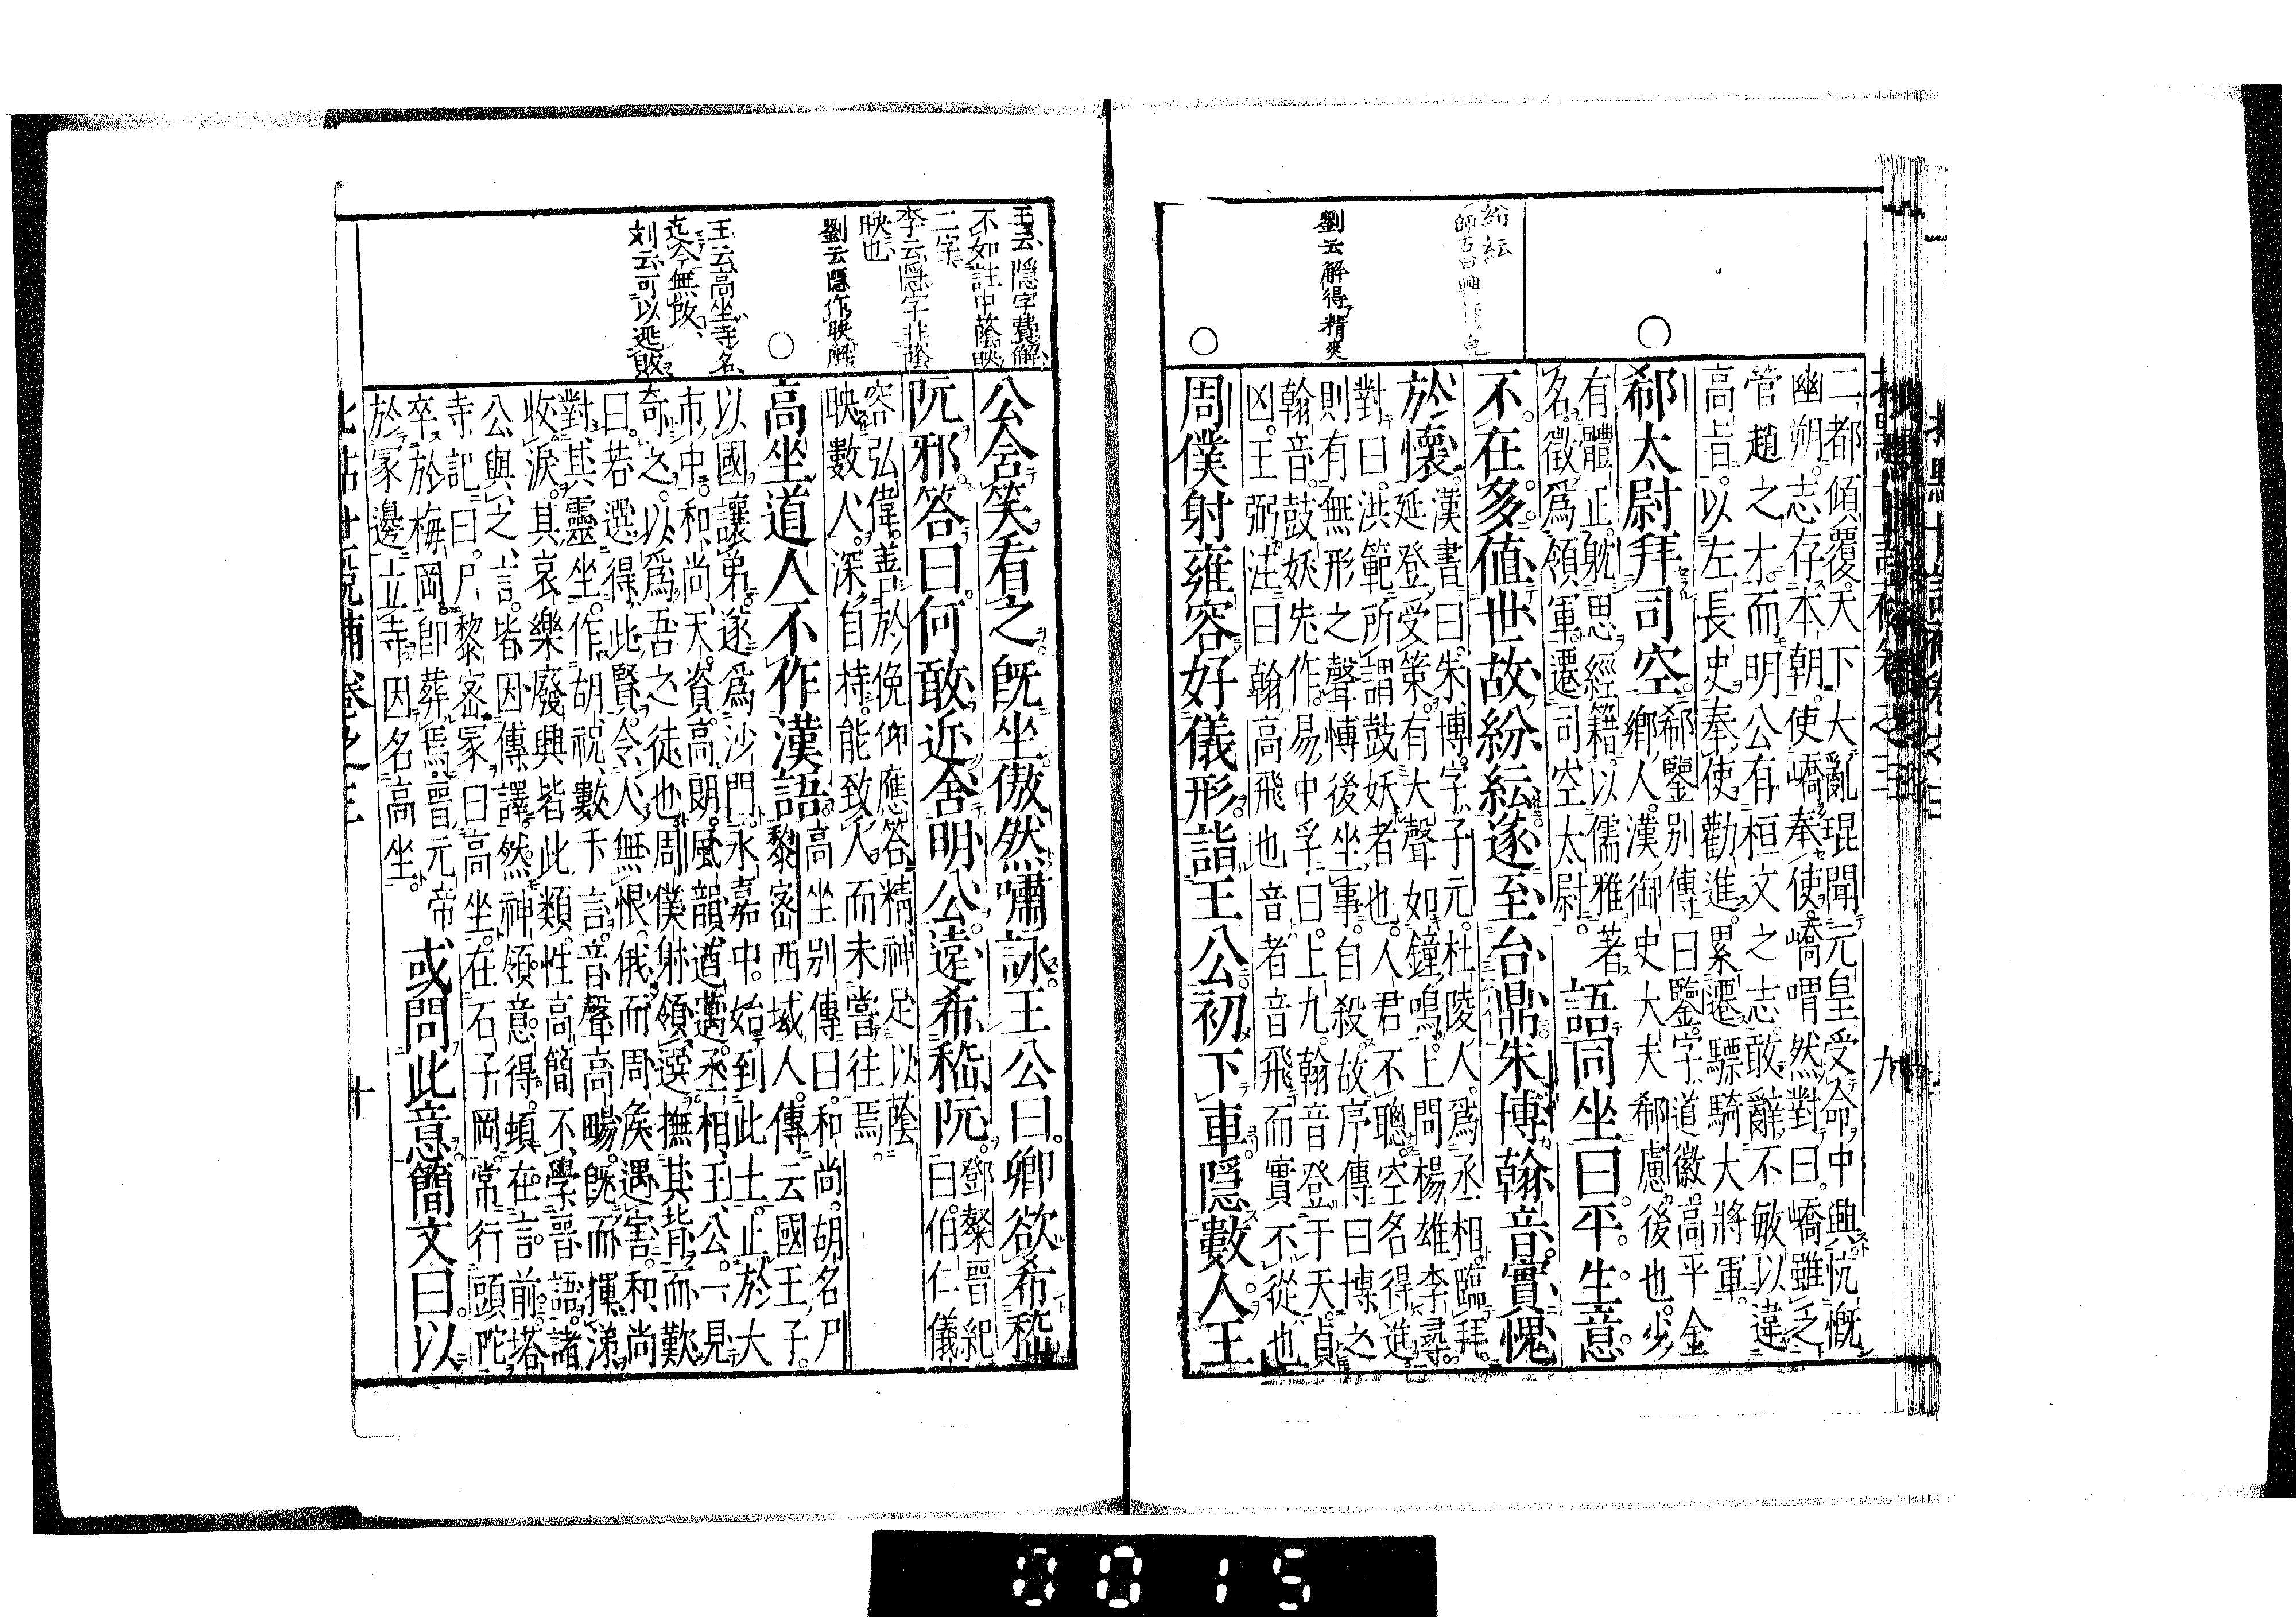 紛紜
師古曰興作皃
劉云解得精爽
二都傾覆。天下大亂。琨聞元皇受命中興。忼慨
幽朔。志存本朝。使嶠奉使。嶠喟然對曰。嶠雖乏
管趙之才。而明公有桓文之志。敢辭不敏。以違
高旨。以左長史奉使勸進。累遷驃騎大將軍。
郗太尉拜司空。
郗鑒別傳曰。鑒字道徽。高平金
鄉人。漢御史大夫郗慮後也。少
有體正。躭思經籍。以儒雅著
名。徵爲領軍。遷司空太尉。
語同坐曰。平生意
不在多。値世故紛紜。遂至台鼎。朱博翰音。實愧
於懷。
漢書曰。朱博。字子元。杜陵人。爲丞相。臨拜。
延登受策。有大聲如鐘鳴。上問楊雄李尋。
對曰。洪範所謂鼓妖者也。人君不聰。空名得進。
則有無形之聲。博後坐事。自殺。故序傳曰。博之
翰音。鼓妖先作。易中孚曰。上九。翰音登于天。貞
凶。王弼注曰。翰高飛也。音者音飛而實不從也。
周僕射雍容好儀形。詣王公。初下車。隱數人。王
九
王云隱字費解
不如註中蔭映
二字
李云隱字非蔭
映也
劉云隱作映解
王云高坐寺名
迄今無改
刘云可以逃敗
公含笑看之。旣坐。傲然嘯詠。王公曰。卿欲希嵇
阮邪。答曰。何敢近舍明公。遠希嵇阮。
鄧粲晉紀
曰。伯仁儀
容弘偉。善於俛仰應答。精神足以蔭
映數人。深自持。能致人。而未嘗往焉。
高坐道人不作漢語。
高坐別傳曰。和尚。胡名尸
黎密。西域人。傳云國王子。
以國讓弟。遂爲沙門。永嘉中。始到此土。止於大
市中。和尚天資高朗。風韻遒邁。丞相王公。一見
奇之。以爲吾之徒也。周僕射領選。撫其背而歎
曰。若選得此賢。令人無恨。俄而周侯遇害。和尚
對其靈坐。作胡祝數千言。音聲高暢。旣而揮涕
收淚。其哀樂廢興皆此類。性高簡。不學晉語。諸
公與之言。皆因傳譯。然神領意得。頓在言前。塔
寺記曰。尸黎密冢曰高坐。在石子岡。常行頭陀。
卒於梅岡。卽葬焉。晉元帝
於冢邊立寺。因名高坐。
或問此意。簡文曰。以
世說補卷之三
十
0015